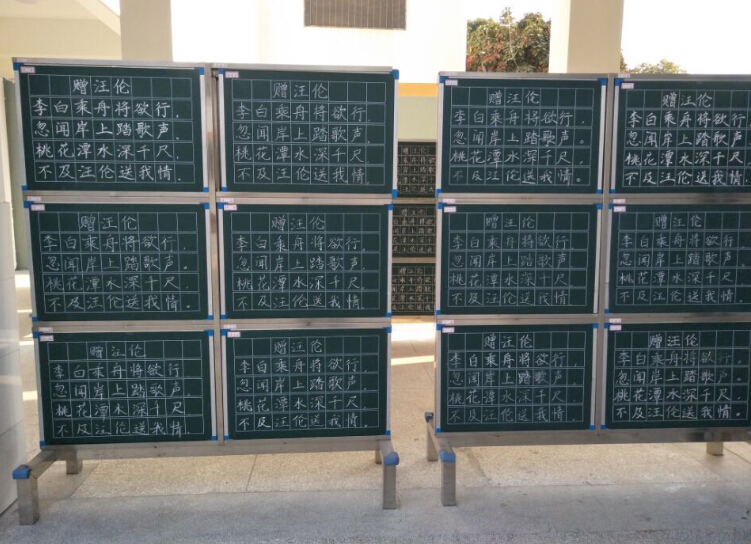 赠汪伦
李白乘舟将欲行，
忽闻岸上踏歌声。
桃花潭水深千尺，
不及汪伦送我情。
赠汪伦
李白乘舟将欲行，
忽闻岸上踏歌声。
桃花潭水深千尺，
不及汪伦送我情。
赠汪伦
李白乘舟将欲行，
忽闻岸上踏歌声。
桃花潭水深千尺，
不及汪伦送我情。
赠汪伦
李白乘舟将欲行，
忽闻岸上踏歌声。
桃花潭水深千尺，
不及汪伦送我情。
赠汪伦
李白乘舟将欲行，
忽闻岸上踏歌声。
桃花潭水深千尺，
不及汪伦送我情。
赠汪伦
李白乘舟将欲行，
忽闻岸上踏歌声。
桃花潭水深千尺，
不及汪伦送我情。
赠汪伦
李白乘舟将欲行，
忽闻岸上踏歌声。
桃花潭水深千尺，
不及汪伦送我情。
赠汪伦
李白乘舟将欲行，
忽闻岸上踏歌声。
桃花潭水深千尺，
不及汪伦送我情。
赠汪伦
李白乘舟将欲行
忽闻岸上踏歌声
桃花潭水深千尺
不及汪伦送我情
赠汪伦
李白乘舟将欲行，
忽闻岸上踏歌声。
桃花潭水深千尺，
不及汪伦送我情。
赠汪伦
李白乘舟将欲行，
忽闻岸上踏歌声。
桃花潭水深千尺，
不及汪伦送我情。
赠汪伦
李白乘舟将欲行，
忽闻岸上踏歌声。
桃花潭水深千尺，
不及汪伦送我情。